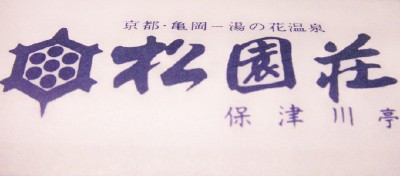 京都・亀岡－湯の花温泉
松園荘
保津川亭